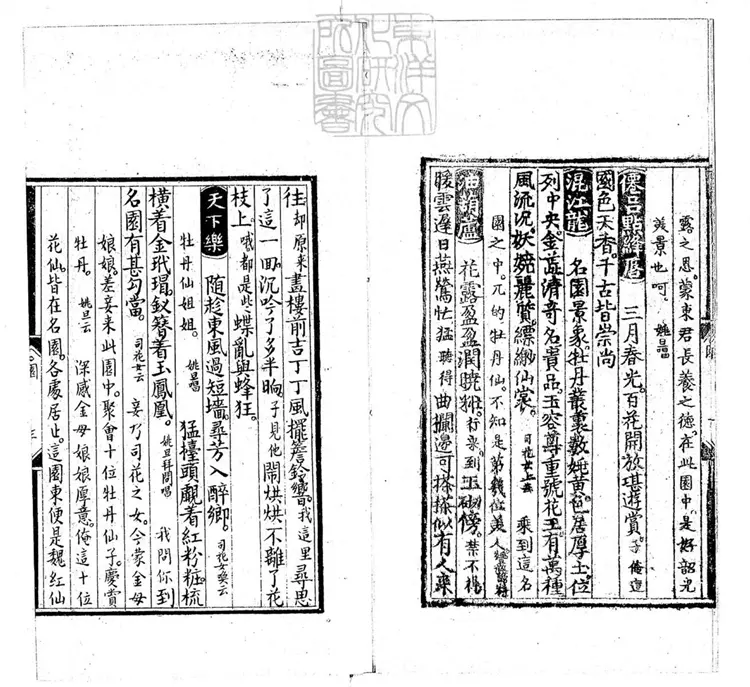 露之恩蒙東君長養之德在此園中是好韶光
美景也呵姚旦唱
仙呂點絳唇 三月春光百花開放堪遊賞
國色天香千古皆崇尚
混江龍 名園景象牡丹叢裏數姚黃色居厚土位
列中央金蕋清奇名貴品玉容尊重號花王有萬種
風流況妖嬈麗質縹緲仙裳司花女上云 來到這名
園之中兀的牡丹仙不知是第幾位美人
油葫蘆 花露盈盈潤曉粧行來到玉砌傍禁不得
暖雲遲日燕鶯忙猛聽得曲攔邊可搽搽似有人來
往却原來畫樓前吉丁丁風擺簷鈴響我這里尋思
了這一回沉吟了多半晌子見他鬧烘烘不離了花
枝上哦都是些蝶亂與蜂狂
天下樂 隨趁東風過短墻尋芳入醉鄉司花女笑云
牡丹仙姐姐姚旦唱 猛檯頭覷着紅粉粧梳
橫着金玳瑁釵簪着玉鳳凰姚旦拜問唱 我問你到
名園有甚勾當司花女云 妾乃司花之女今蒙金母
娘娘差妾來此園中聚會十位牡丹仙子慶賞
牡丹姚旦云 深感金母娘娘厚意俺這十位
花仙皆在名園各處居止這園東便是魏紅仙